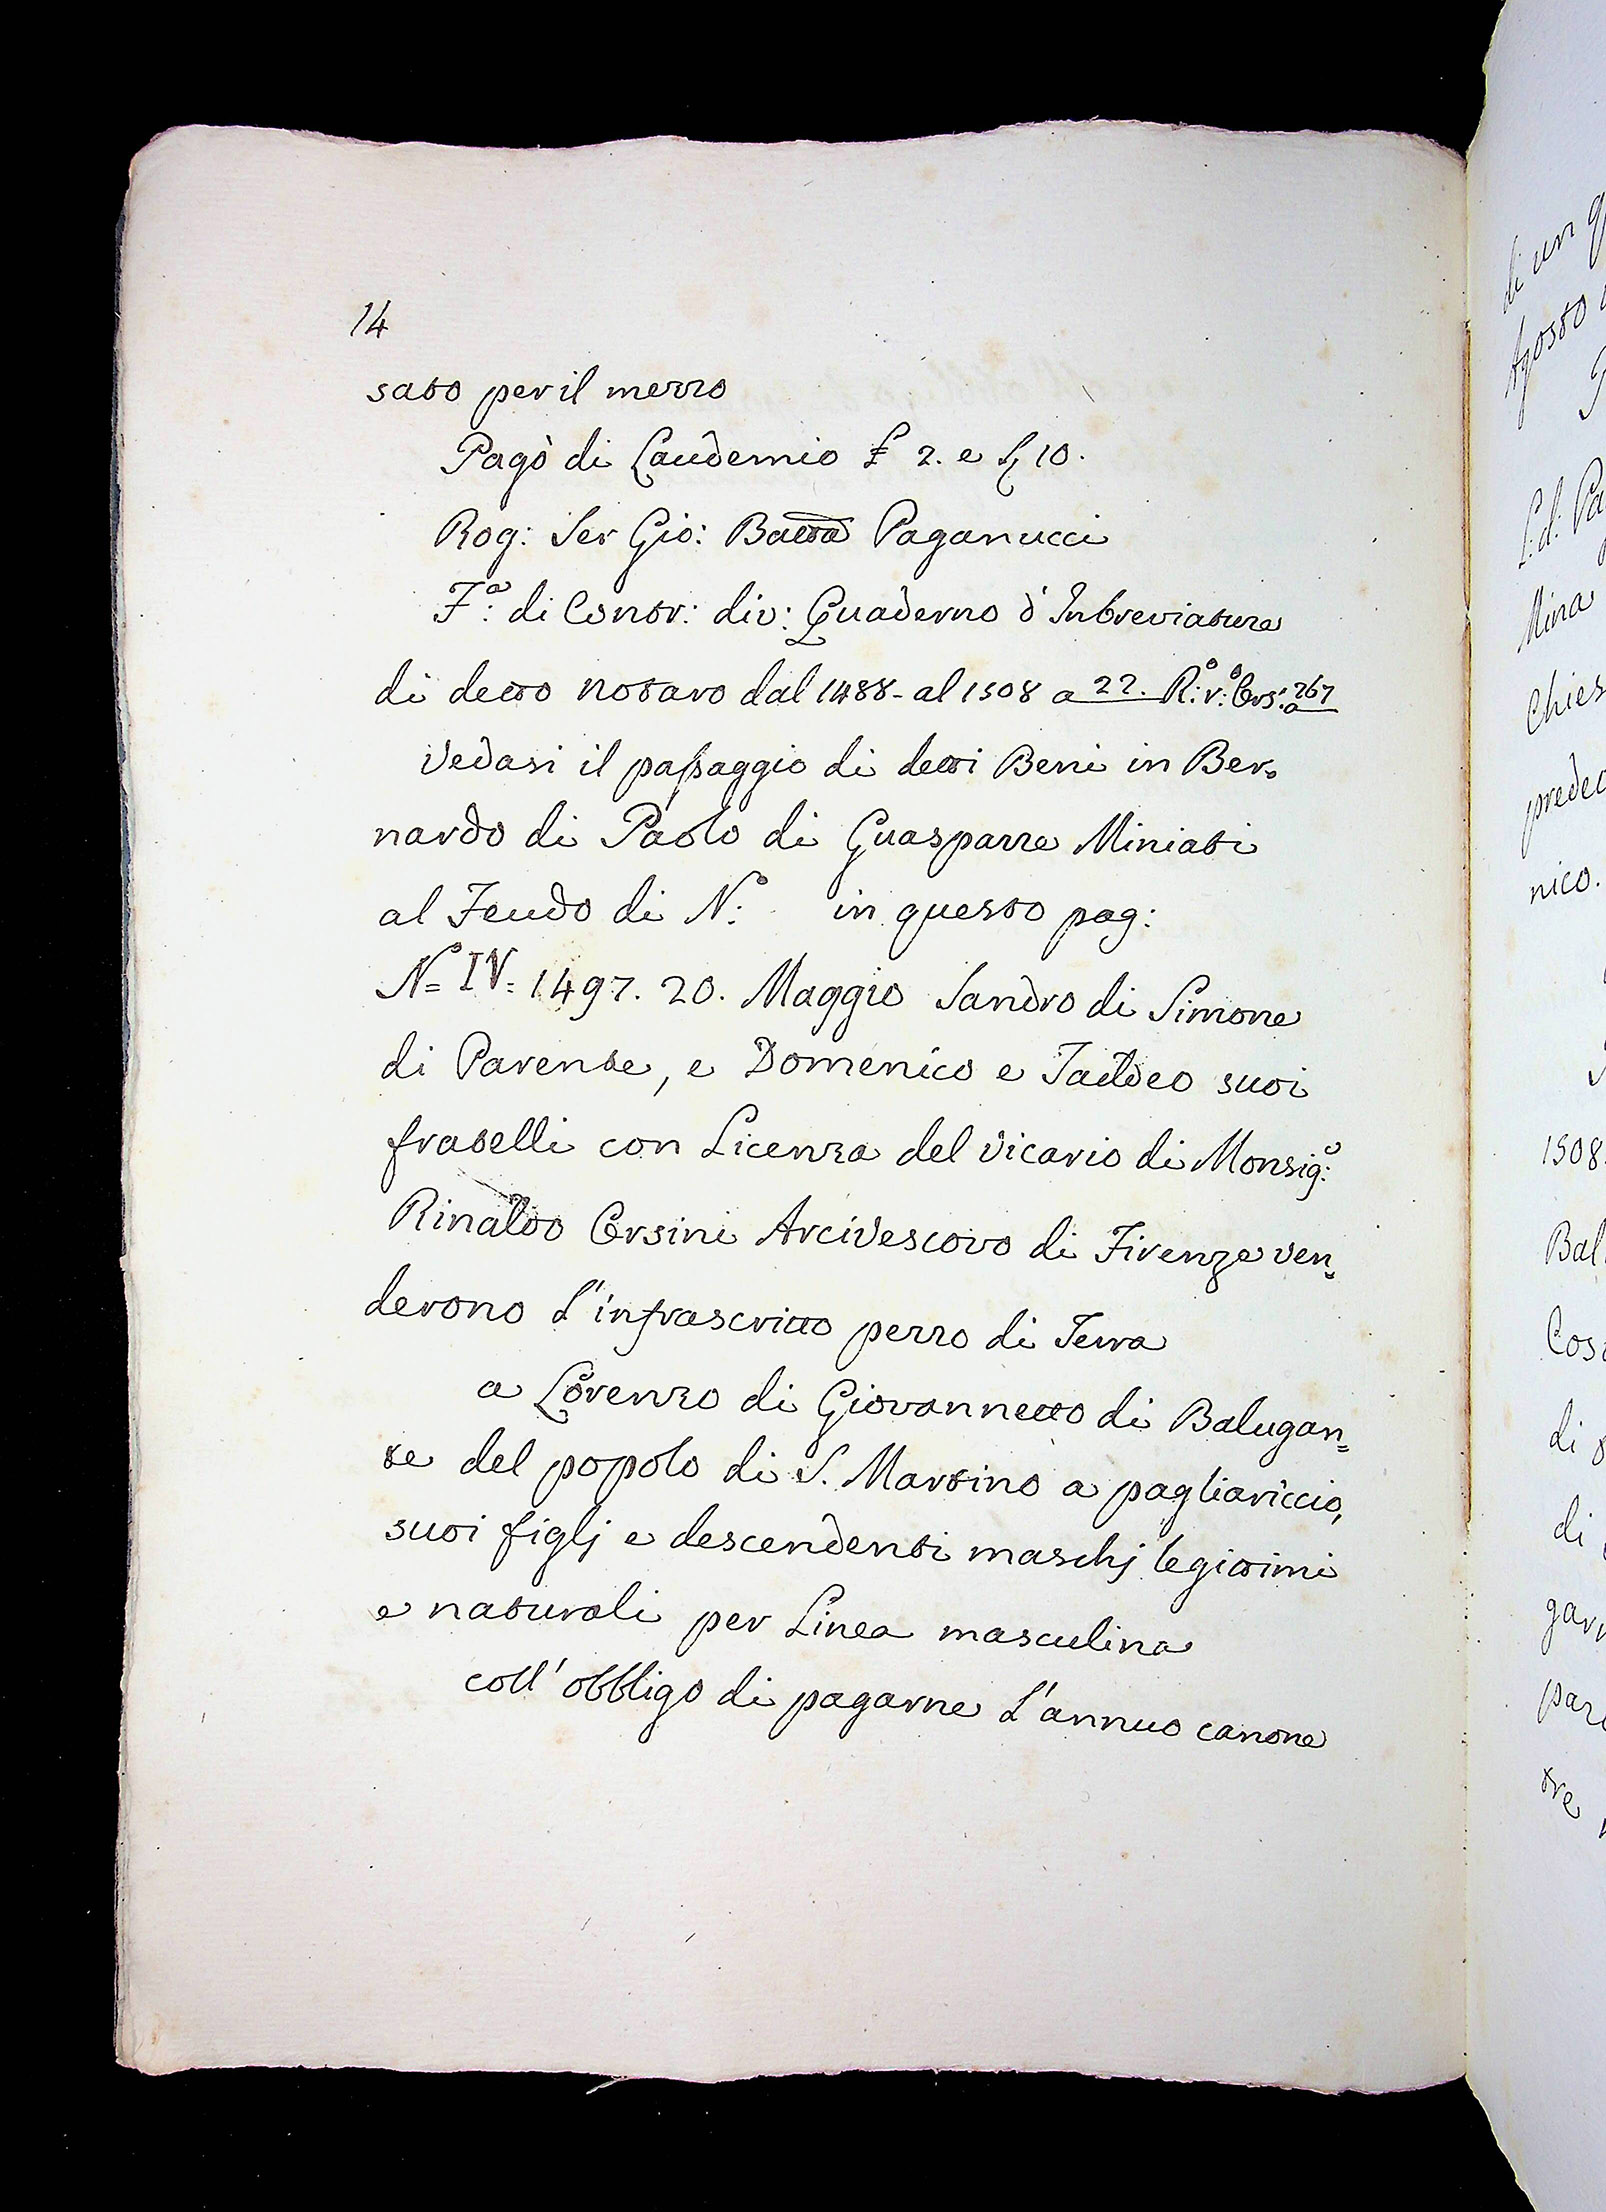 14
sato per il mezzo
Pagò di Laudemio £ 2. e ₰ 10.
Rog: Ser Gio: Batta Paganucci
Fa: di Contr: div: Quaderno d'Inbreviature
di detto notaro dal 1488- al 1508 a 22. R:o v:o Ors: a 267
Vedasi il passaggio di detti Beni in Ber=
nardo di Paolo di Guasparre Miniati
al Feudo di N:o in questo pag:
No= IV= 1497. 20. Maggio Sandro di Simone
di Parente, e Domenico e Taddeo suoi
fratelli con Licenza del Vicario di Monsig:e
Rinaldo Orsini Arcivescovo di Firenze ven=
derono l'infrascritto pezzo di Terra
a Lorenzo di Giovannetto di Balugan=
te del popolo di S. Martino a pagliariccio,
suoi figlj e descendenti maschj legittimi
e naturali per Linea masculina
coll'obbligo di pagarne l'annuo canone
di un
Agosto
L:d: Pa
Mina
Chies
predec
nico.
1508.
Bal
Cos
di
di
gar
par
tre